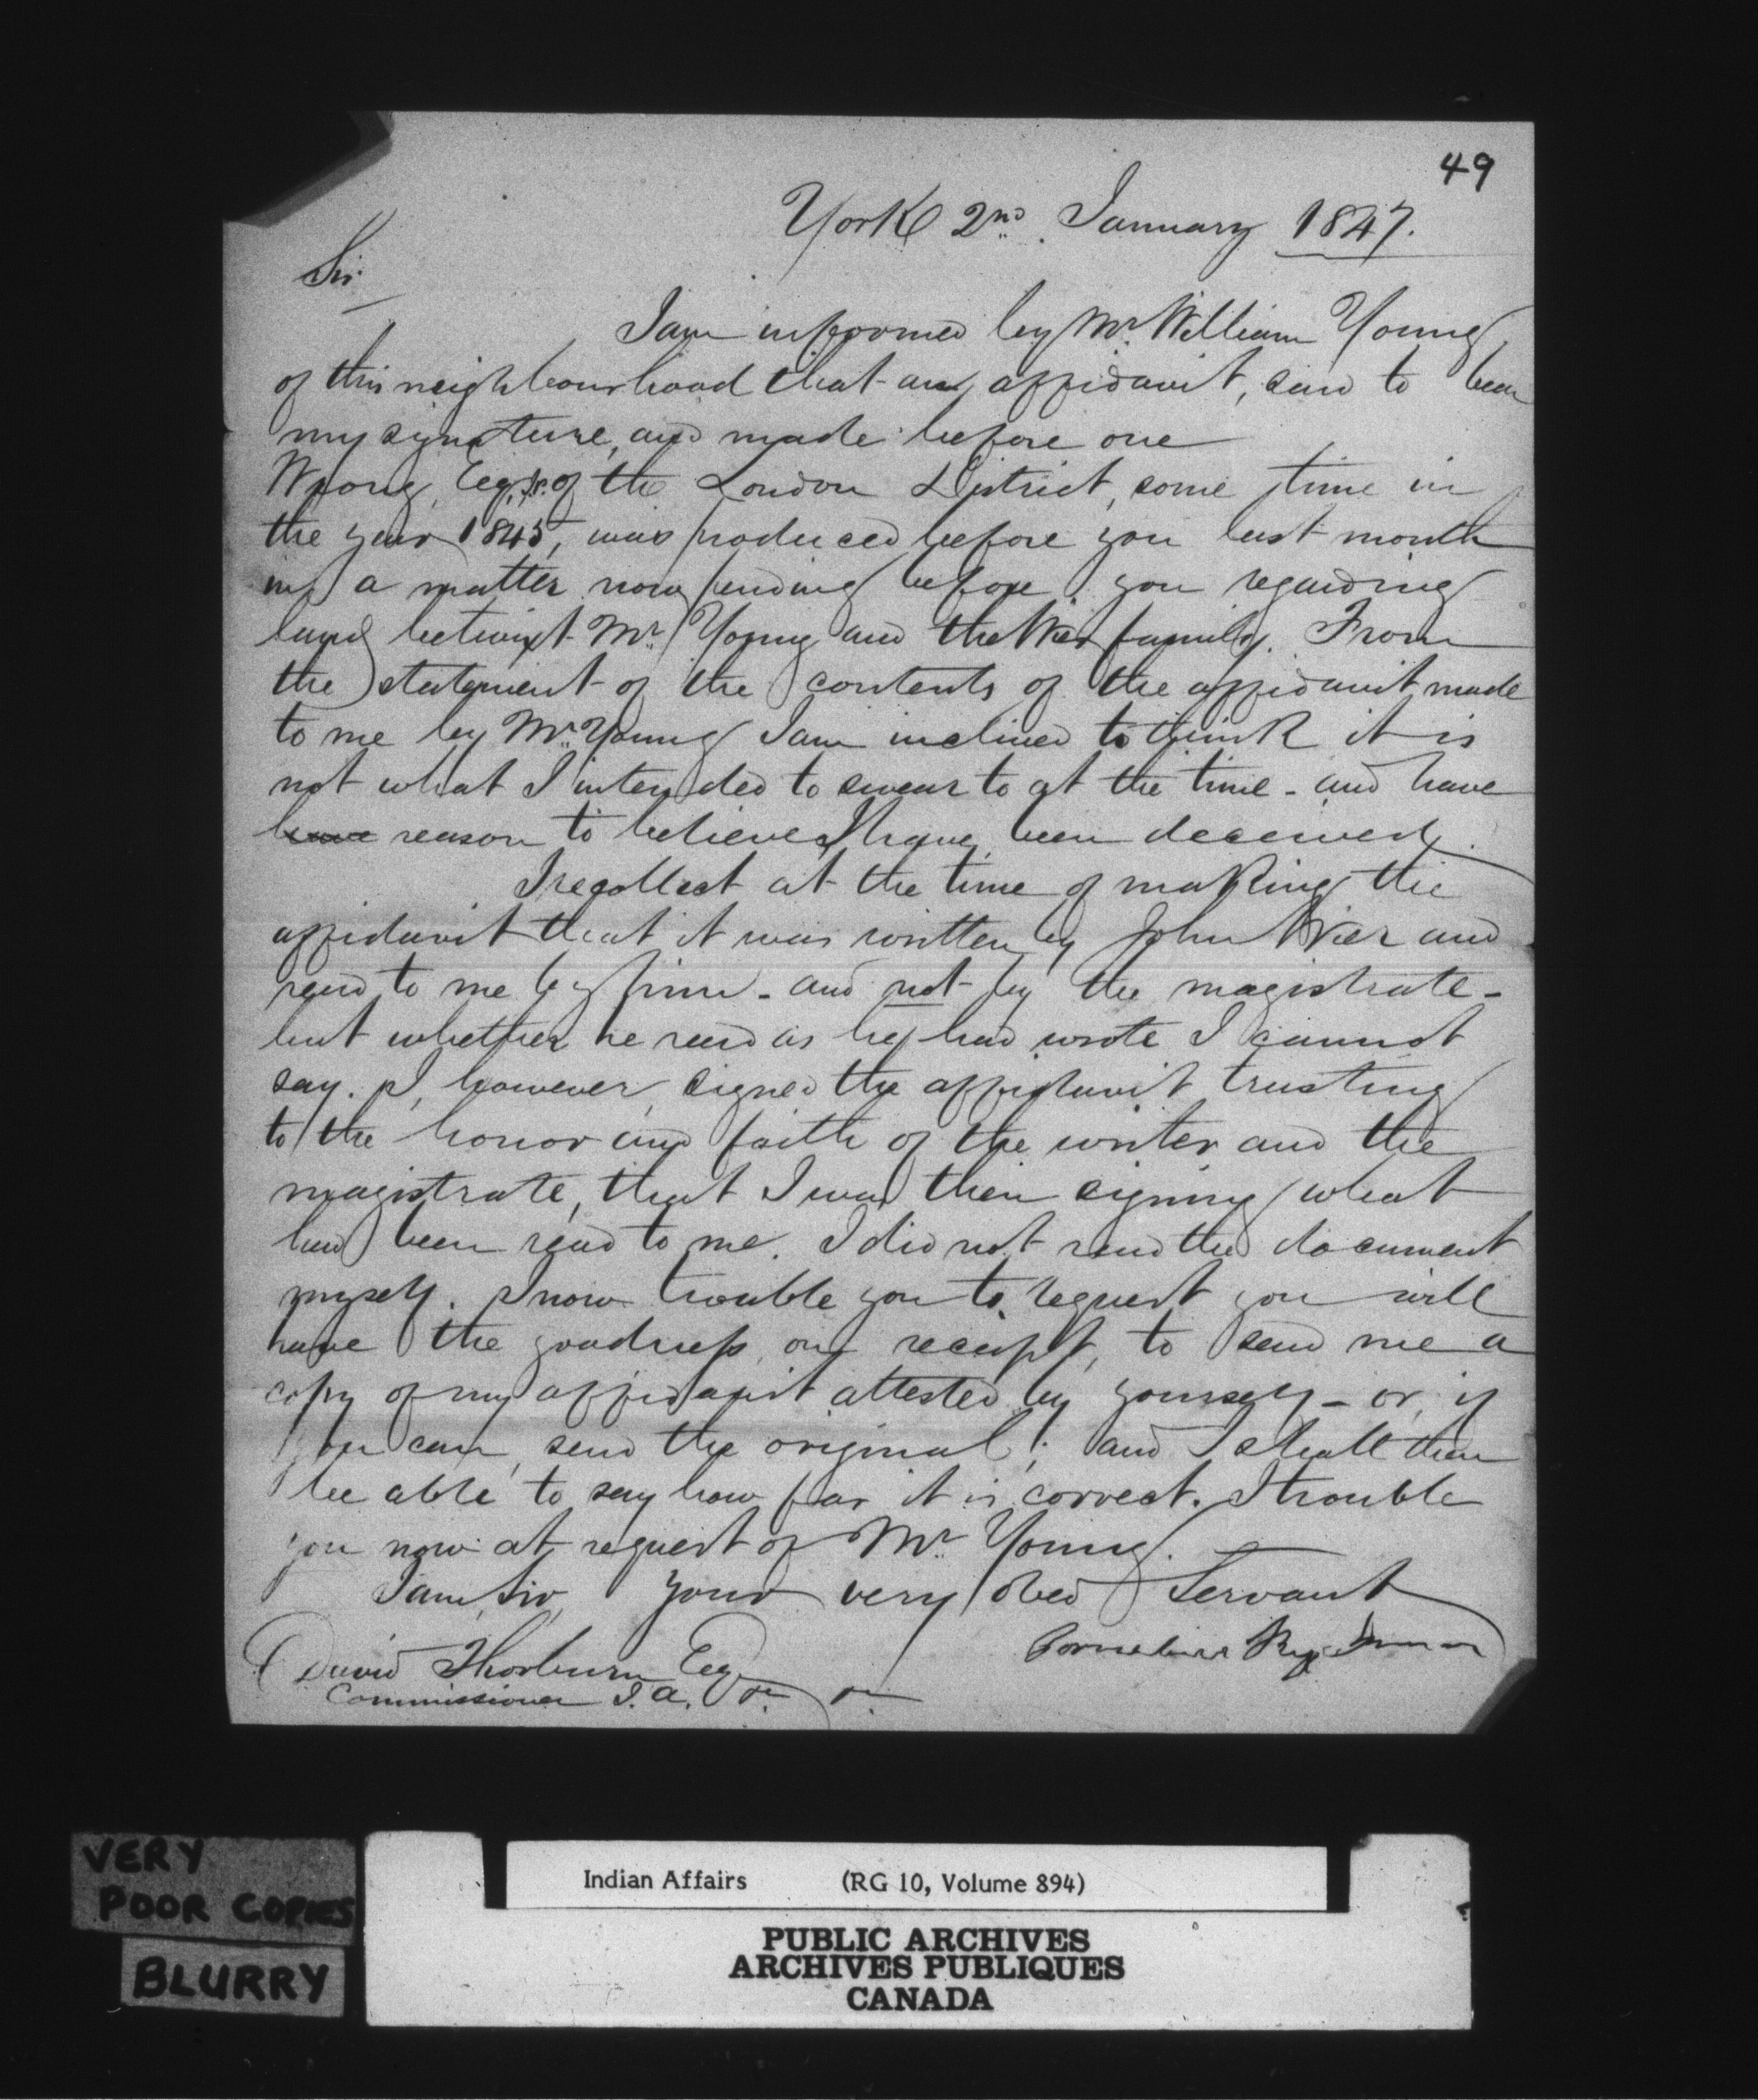 49
York 2nd. January 1847.
Sir
I am informed by Mr. William Young
of this neighbourhood that an affidavit, said to bear
my signature, and made before one
Wrong, Esqr. of the London District, some time in
the year 1845, was produced before you last month
in a matter now pending before you regarding
land betwixt Mr. Young and the Wier family. From
the statement of the contents of the affidavit made
to me by Mr. Young I am inclined to think it is
not what I intended to swear to at the time - and have
have reason to believe I have been deceived.
I recollect at the time of making the
affidavit that it was written by John Wier and
read to me by him - and not by the magistrate -
but whether he read as he had wrote I cannot
say. I, however, signed the affidavit trusting
to the honor and faith of the writer and the
magistrate, that I was then signing what
had been read to me. I did not read the document
myself. I now trouble you to request you will
have the goodness, on receipt, to send me a
copy of my affidavit attested by yourself - or, if
you can, send the original; and I shall then
be able to say how far it is correct. I trouble
you now at request of Mr. Young.
I am, Sir, your very obed Servant
Cornelius
David Thorburn Esq
Commissioner I. A.
VERY
POOR COPIES
BLURRY
Indian Affairs (RG 10, Volume 894)
PUBLIC ARCHIVES
ARCHIVES PUBLIQUES
CANADA